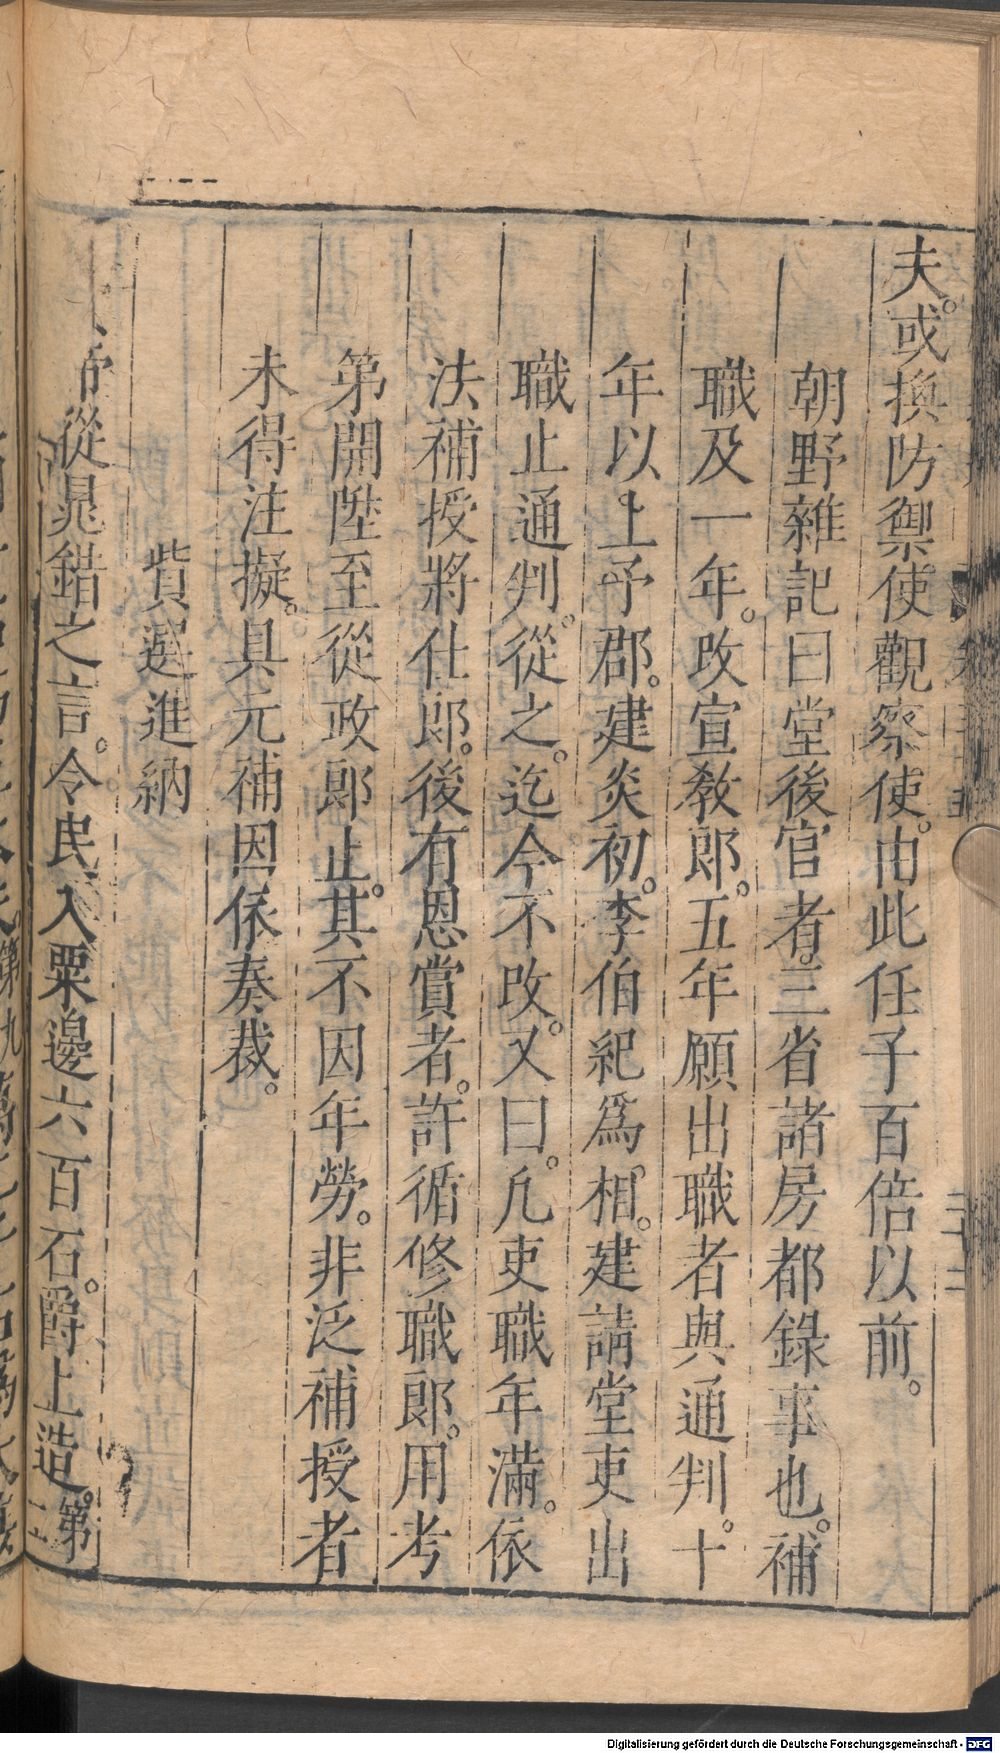 夫。或換防禦使觀察使。由此任子百倍以前。
朝野雜記曰堂後官者。三省諸房都錄事也。補
職及一年。改宣教郎。五年願出職者與通判。十
年以上予郡。建炎初。李伯紀爲相。建請堂吏出
職止通判。從之。迄今不改。又曰。凡吏職年滿。依
法補授將仕郎。後有恩賞者。許循修職郎。用考
第開陞至從政郎止。其不因年勞。非泛補授者
未得注擬。具元補因依奏裁。
貲選進納
帝從鼂錯之言。令民入粟邊六百石。爵上造。第二
Digitalisierung gefördert durch die Deutsche Forschungsgemeinschaft - DFG